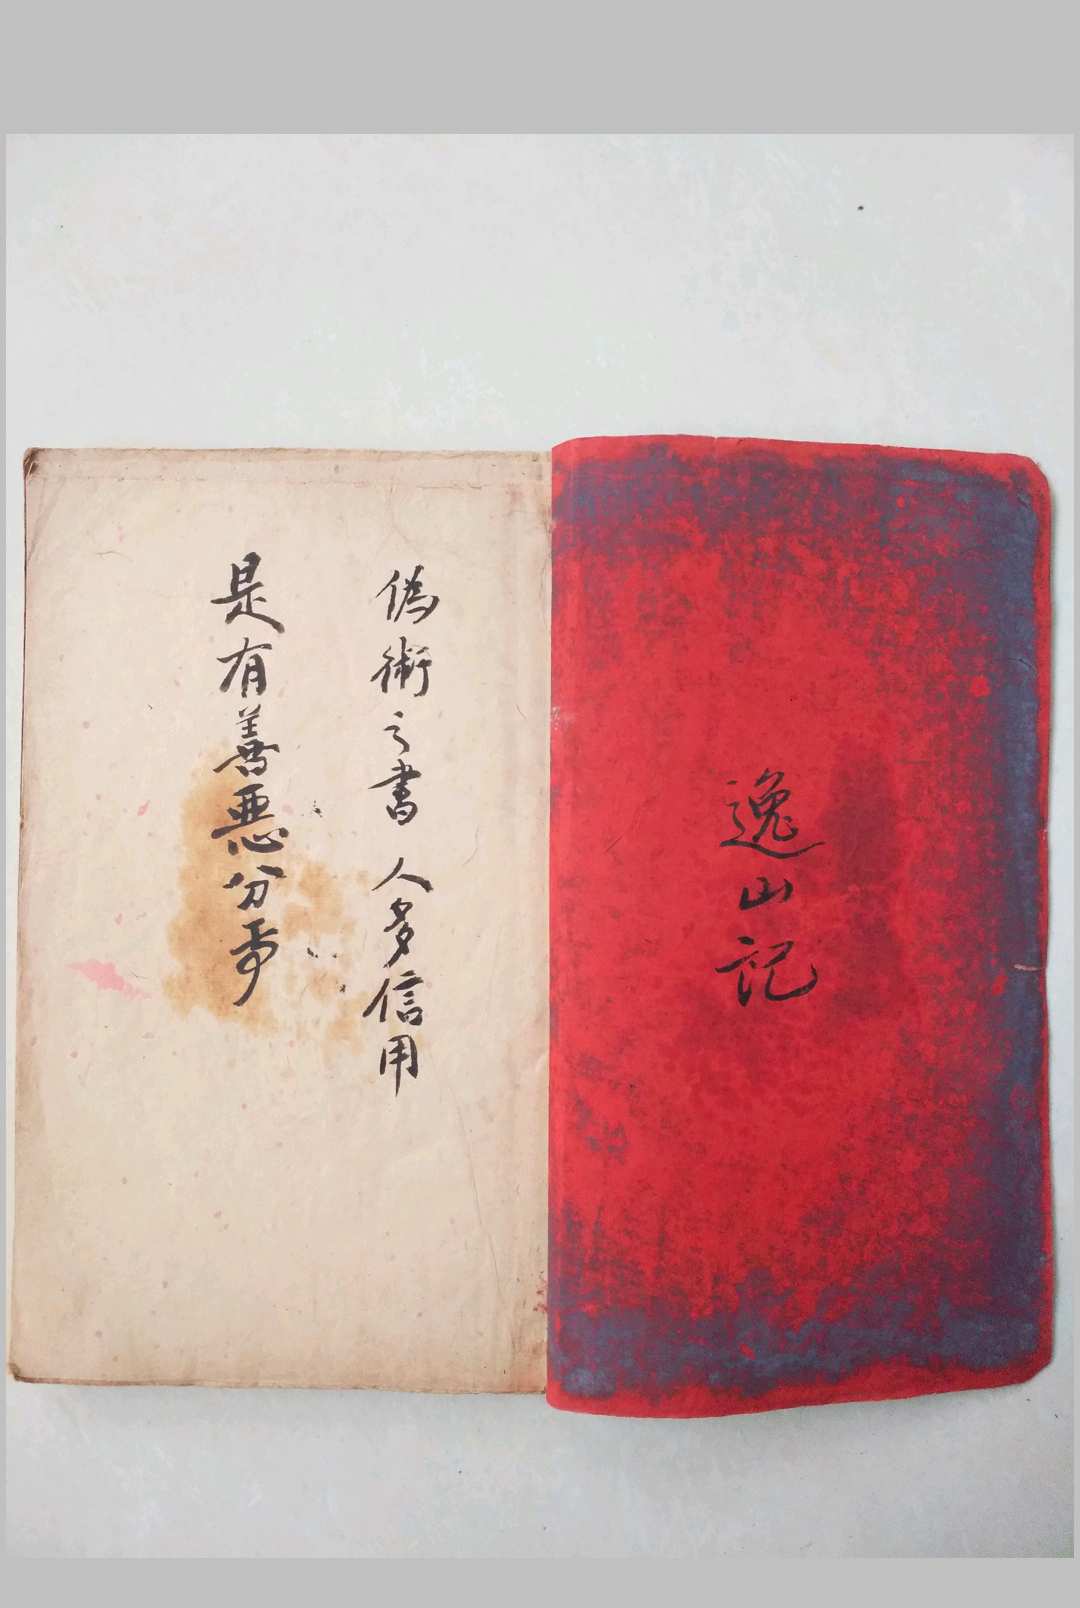 逸山記
偽術之書 人多信用
是有善悪分